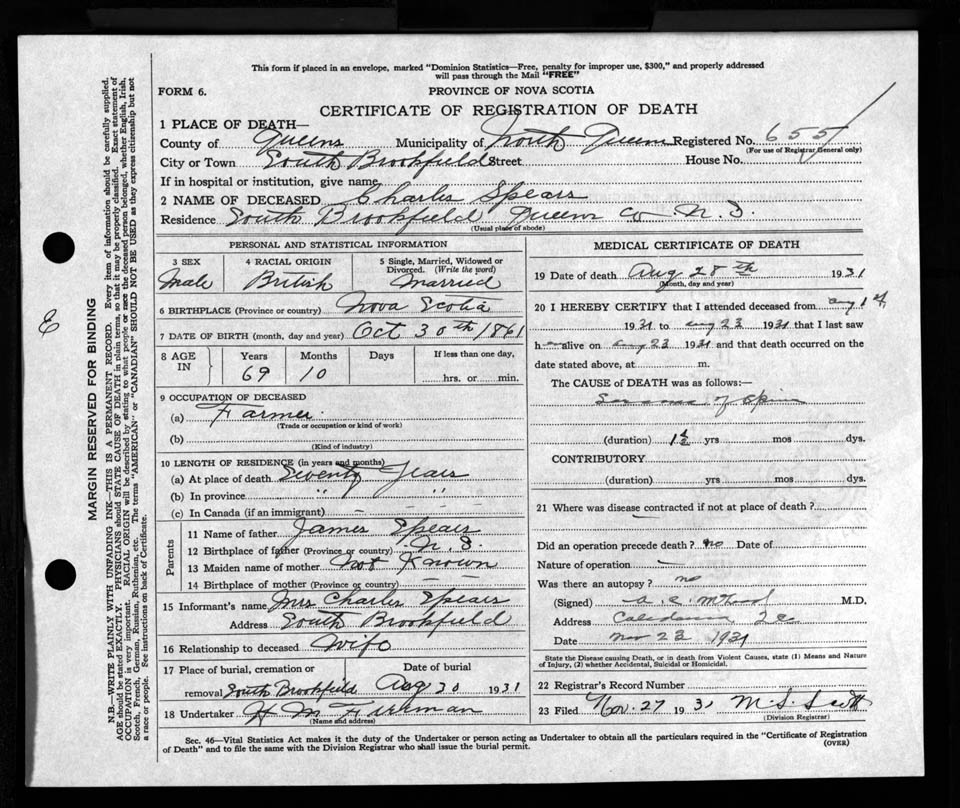 This form if placed in an envelope, marked "Dominion Statistics—Free, penalty for improper use, $300," and properly addressed
will pass through the Mail "FREE"
FORM 6.
PROVINCE OF NOVA SCOTIA
CERTIFICATE OF REGISTRATION OF DEATH
1 PLACE OF DEATH—
County of Queens Municipality of North Queens Registered No. 655
(For use of Registrar General only)
City or Town South Brookfield Street House No.
If in hospital or institution, give name
2 NAME OF DECEASED Charles Spears
Residence South Brookfield Queens Co N. S.
(Usual place of abode)
PERSONAL AND STATISTICAL INFORMATION
3 SEX 4 RACIAL ORIGIN 5 Single, Married, Widowed or
Divorced. (Write the word)
Male British Married
6 BIRTHPLACE (Province or country) Nova Scotia
7 DATE OF BIRTH (month, day and year) Oct 30th 1861
8 AGE IN Years Months Days If less than one day,
69 10 hrs. or min.
9 OCCUPATION OF DECEASED
(a) Farmer
(Trade or occupation or kind of work)
(b)
(Kind of industry)
10 LENGTH OF RESIDENCE (in years and months)
(a) At place of death Seventy Years
(b) In province " " "
(c) In Canada (if an immigrant) — —
Parents
11 Name of father James Spears
12 Birthplace of father (Province or country) N. S.
13 Maiden name of mother Not Known
14 Birthplace of mother (Province or country) — —
15 Informant's name Mrs Charles Spears
Address South Brookfield
16 Relationship to deceased Wife
17 Place of burial, cremation or Date of burial
removal South Brookfield Aug 30 1931
18 Undertaker H M
(Name and address)
MEDICAL CERTIFICATE OF DEATH
19 Date of death Aug 28th 1931
(Month, day and year)
20 I HEREBY CERTIFY that I attended deceased from Aug 1st
1931 to Aug 23 1931 that I last saw
h alive on Aug 23 1931 and that death occurred on the
date stated above, at m.
The CAUSE OF DEATH was as follows:—
of Spine
(duration) 1½ yrs mos dys.
CONTRIBUTORY
(duration) yrs mos dys.
21 Where was disease contracted if not at place of death?
—
Did an operation precede death? No Date of
Nature of operation —
Was there an autopsy? no
(Signed) M.D.
Address Caledonia
Date Nov 23 1931
State the Disease causing Death, or in death from Violent Causes, state (1) Means and Nature
of Injury, (2) whether Accidental, Suicidal or Homicidal.
22 Registrar's Record Number
23 Filed Nov. 27 1931 M. S. Scott
(Division Registrar)
Sec. 46—Vital Statistics Act makes it the duty of the Undertaker or person acting as Undertaker to obtain all the particulars required in the "Certificate of Registration
of Death" and to file the same with the Division Registrar who shall issue the burial permit.
(OVER)
E
MARGIN RESERVED FOR BINDING
N.B.—WRITE PLAINLY WITH UNFADING INK—THIS IS A PERMANENT RECORD. Every item of information should be carefully supplied.
AGE should be stated EXACTLY. PHYSICIANS should STATE CAUSE OF DEATH in plain terms, so that it may be properly classified. Exact statement of
OCCUPATION is very important. RACIAL ORIGIN will be described by stating to what people or race the deceased person belonged, whether English, Irish,
Scotch, French, German, Russian, Ruthenian, etc. The terms "AMERICAN" or "CANADIAN" SHOULD NOT BE USED as they express citizenship but not
a race or people. See instructions on back of Certificate.